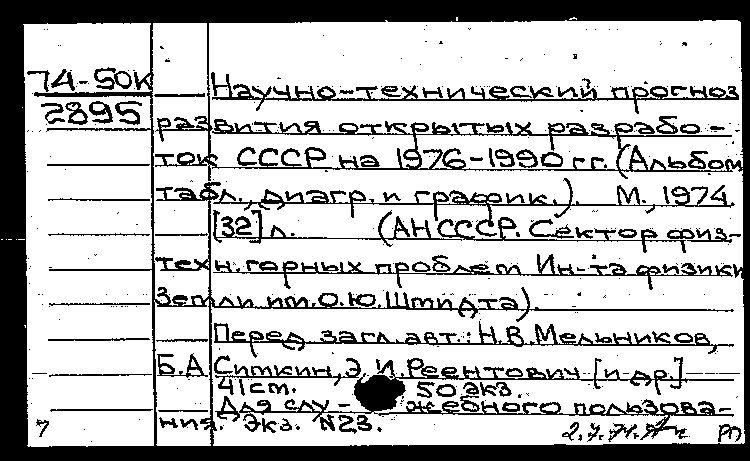 74-50К
2895
Научно-технический прогноз
развития открытых разрабо-
ток СССР на 1976-1990 гг. (Альбом
табл., диагр. и график.). М., 1974.
[32] л. (АН СССР. Сектор физ-
техн. горных проблем Ин-та физики
Земли им. О.Ю. Шмидта).
Перед загл. авт.: Н.В. Мельников,
Б.А. Ситкин, Э.И. Реентович [и др.]
41 ст. 50 экз.
Для слу- жебного пользова-
ния. Экз. №23.
7 РП